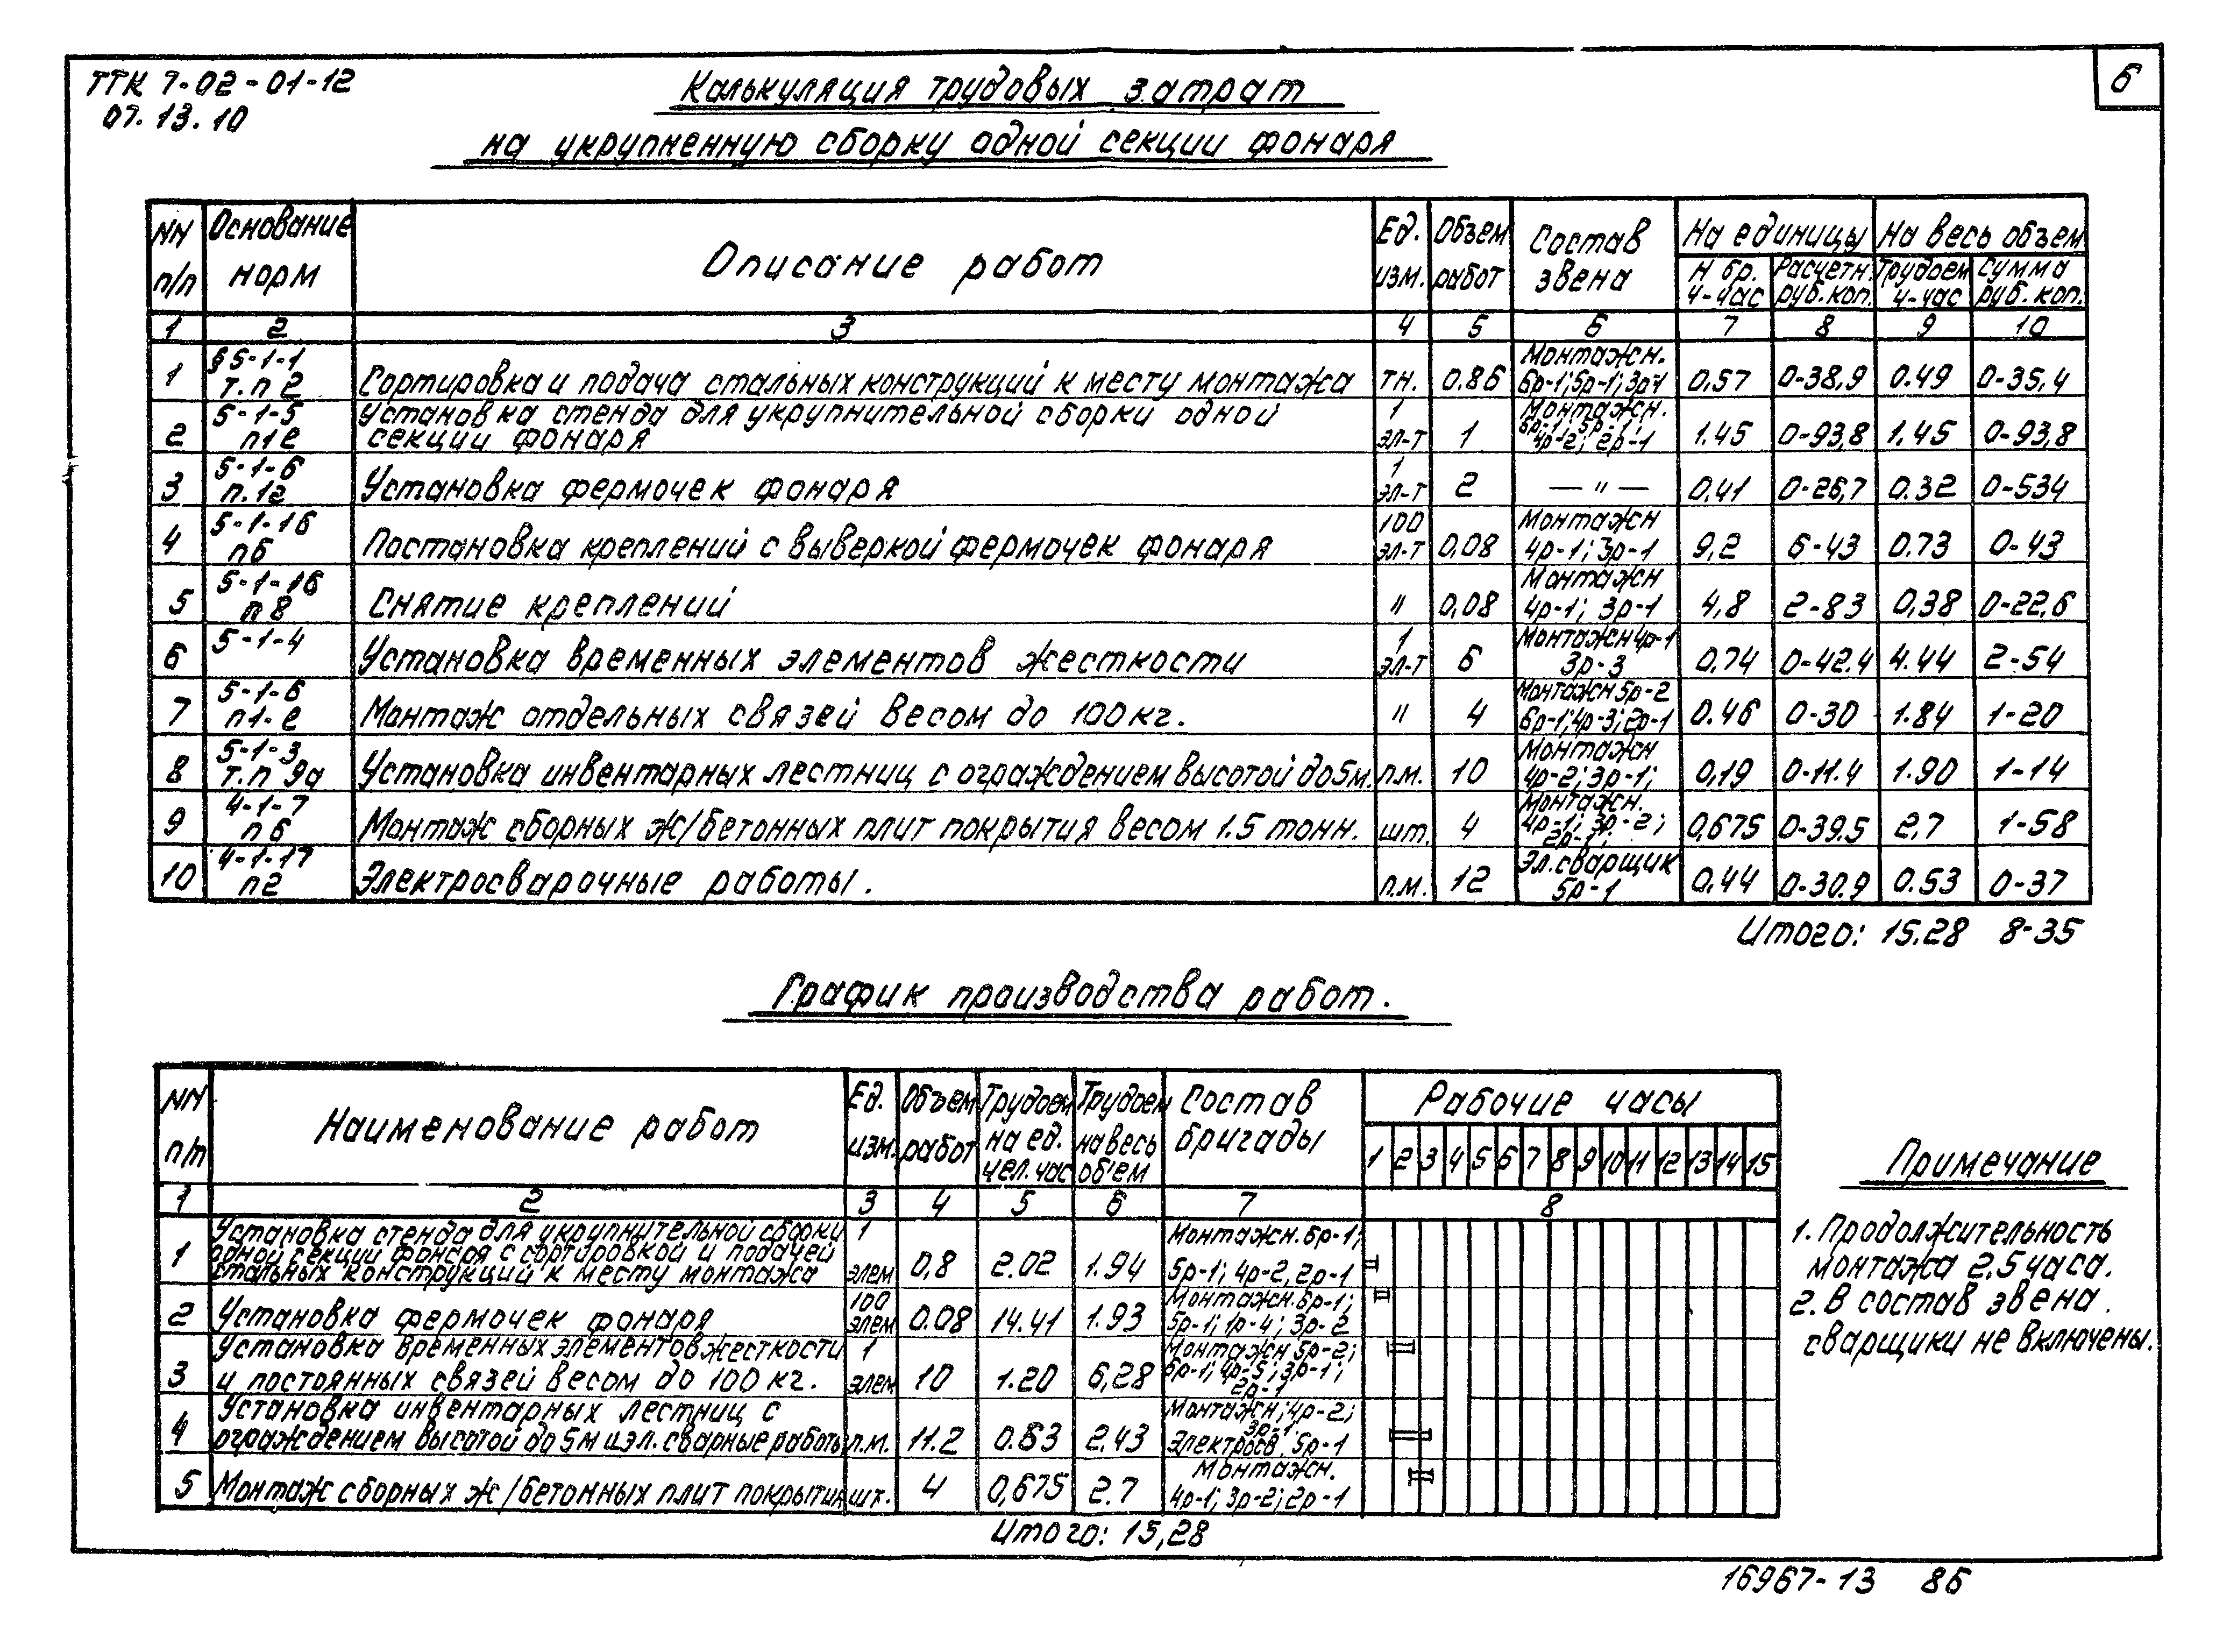 ТТК 7-02-01-12
07.13.10
6
Калькуляция трудовых затрат
на укрупненную сборку одной секции фонаря
NN п/п | Основание норм | Описание работ | Ед. изм. | Объем работ | Состав звена | На единицы | На весь объем
Н вр. ч-час | Расчетн. руб. коп. | Трудоем ч-час | Сумма руб. коп.
1 | 2 | 3 | 4 | 5 | 6 | 7 | 8 | 9 | 10
1 | §5-1-1 т. п 2 | Сортировка и подача стальных конструкций к месту монтажа | тн. | 0.86 | Монтажн. 6р-1; 5р-1; 3р-1 | 0.57 | 0-38,9 | 0.49 | 0-35,4
2 | 5-1-5 п1е | Установка стенда для укрупнительной сборки одной секции фонаря | 1 эл-т | 1 | Монтажн. 6р-1; 5р-1; 4р-2; 2р-1 | 1.45 | 0-93,8 | 1.45 | 0-93,8
3 | 5-1-6 п.1г | Установка фермочек фонаря | 1 эл-т | 2 | — " — | 0.41 | 0-26,7 | 0.32 | 0-534
4 | 5-1-16 п6 | Постановка креплений с выверкой фермочек фонаря | 100 эл-т | 0,08 | Монтажн 4р-1; 3р-1 | 9,2 | 6-43 | 0.73 | 0-43
5 | 5-1-16 п 8 | Снятие креплений | " | 0,08 | Монтажн 4р-1; 3р-1 | 4,8 | 2-83 | 0,38 | 0-22,6
6 | 5-1-4 | Установка временных элементов жесткости | 1 эл-т | 6 | Монтажн 4р-1 3р-3 | 0.74 | 0-42.4 | 4.44 | 2-54
7 | 5-1-6 п1-е | Монтаж отдельных связей весом до 100 кг. | " | 4 | Монтажн 5р-2 6р-1; 4р-3; 2р-1 | 0.46 | 0-30 | 1.84 | 1-20
8 | 5-1-3 т. п 9а | Установка инвентарных лестниц с ограждением высотой до 5м. | п.м. | 10 | Монтажн 4р-2; 3р-1; | 0,19 | 0-11.4 | 1.90 | 1-14
9 | 4-1-7 п 6 | Монтаж сборных ж/бетонных плит покрытия весом 1.5 тонн. | шт. | 4 | Монтажн. 4р-1; 3р-2; 2р-1; | 0,675 | 0-39.5 | 2,7 | 1-58
10 | 4-1-17 п2 | Электросварочные работы. | п.м. | 12 | Эл.сварщик 5р-1 | 0,44 | 0-30.9 | 0.53 | 0-37
Итого: 15.28 8-35
График производства работ.
NN п/п | Наименование работ | Ед. изм. | Объем работ | Трудоем на ед. чел. час | Трудоем на весь объем | Состав бригады | Рабочие часы
1 2 3 4 5 6 7 8 9 10 11 12 13 14 15
1 | 2 | 3 | 4 | 5 | 6 | 7 | 8
1 | Установка стенда для укрупнительной сборки одной секции фонаря с сортировкой и подачей стальных конструкций к месту монтажа | 1 элем | 0,8 | 2.02 | 1.94 | Монтажн. 6р-1; 5р-1; 4р-2, 2р-1
2 | Установка фермочек фонаря | 100 элем | 0.08 | 14.41 | 1.93 | Монтажн. 6р-1; 5р-1; 1р-4; 3р-2
3 | Установка временных элементов жесткости и постоянных связей весом до 100 кг. | 1 элем | 10 | 1.20 | 6,28 | Монтажн 5р-2; 6р-1; 4р-5; 3р-1; 2р-1
4 | Установка инвентарных лестниц с ограждением высотой до 5м и эл. сварные работы | п.м. | 11.2 | 0.63 | 2.43 | Монтажн; 4р-2; 3р-1. Электросв. 5р-1
5 | Монтаж сборных ж/бетонных плит покрытия | шт. | 4 | 0,675 | 2.7 | Монтажн. 4р-1; 3р-2; 2р-1
Итого: 15,28
Примечание
1. Продолжительность
монтажа 2.5 часа.
2. В состав звена
сварщики не включены.
16967-13 86